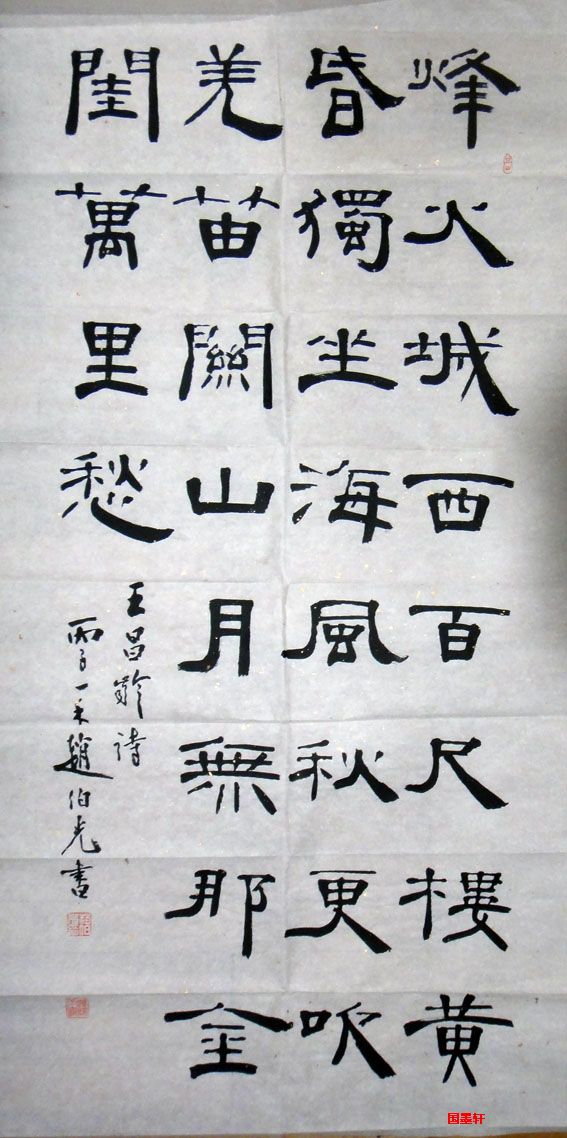 烽火城西百尺樓黄
昏獨坐海風秋更吹
羌笛關山月無那金
閨萬里愁
王昌齡詩
丙子趙伯光書
国墨轩